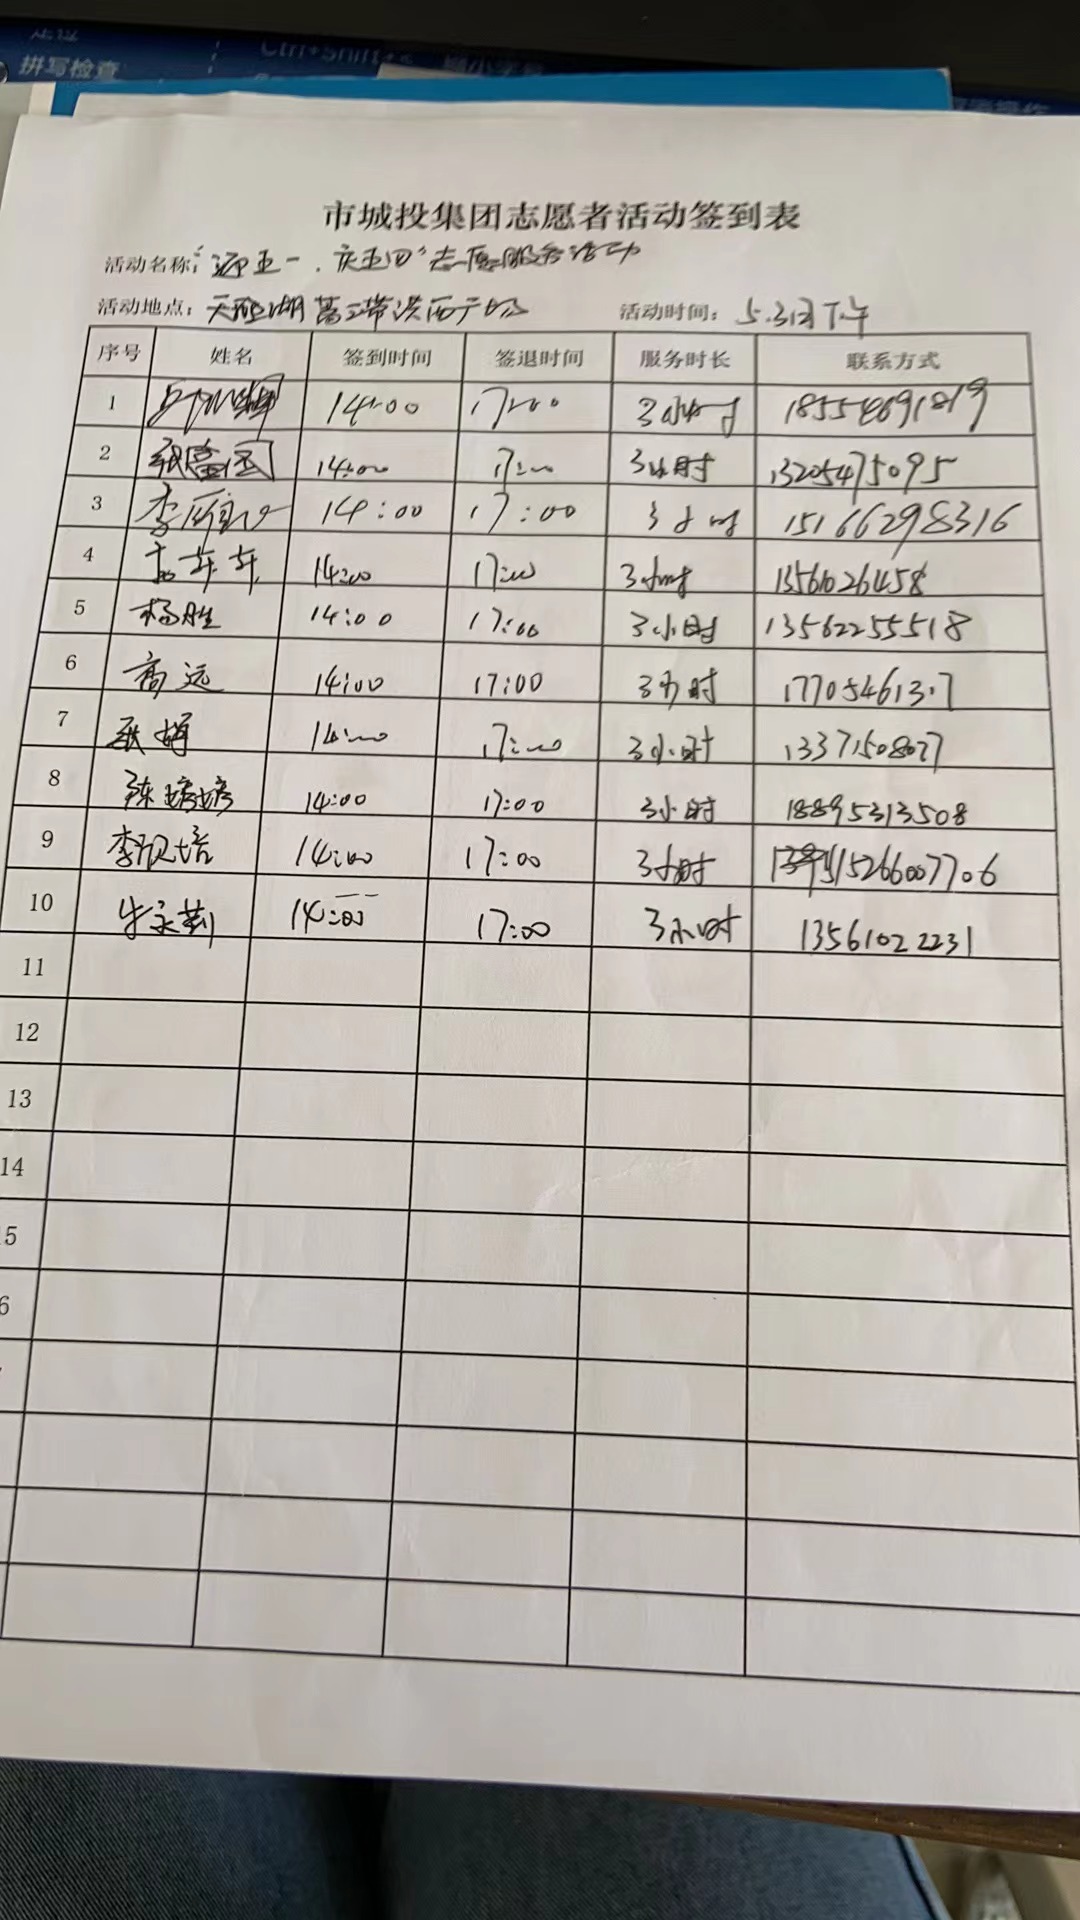 拼写检查
Ctrl+Shift+<
市城投集团志愿者活动签到表
活动名称:"迎五一、庆五四"志愿服务活动
活动地点: 天 湖 广场 活动时间: 5.3日下午
序号 姓名 签到时间 签退时间 服务时长 联系方式
1 14:00 17:00 3小时 18554691819
2 张富国 14:00 17:00 3小时 13205475095
3 李 14:00 17:00 3小时 15166298316
4 14:00 17:00 3小时 13561026458
5 杨胜 14:00 17:00 3小时 13562255518
6 高远 14:00 17:00 3小时
7 张娟 14:00 17:00 3小时 13371508077
8 陈婷婷 14:00 17:00 3小时 18895313508
9 李 培 14:00 17:00 3小时 15266007706
10 牛 14:00 17:00 3小时 13561022231
11
12
13
14
5
6